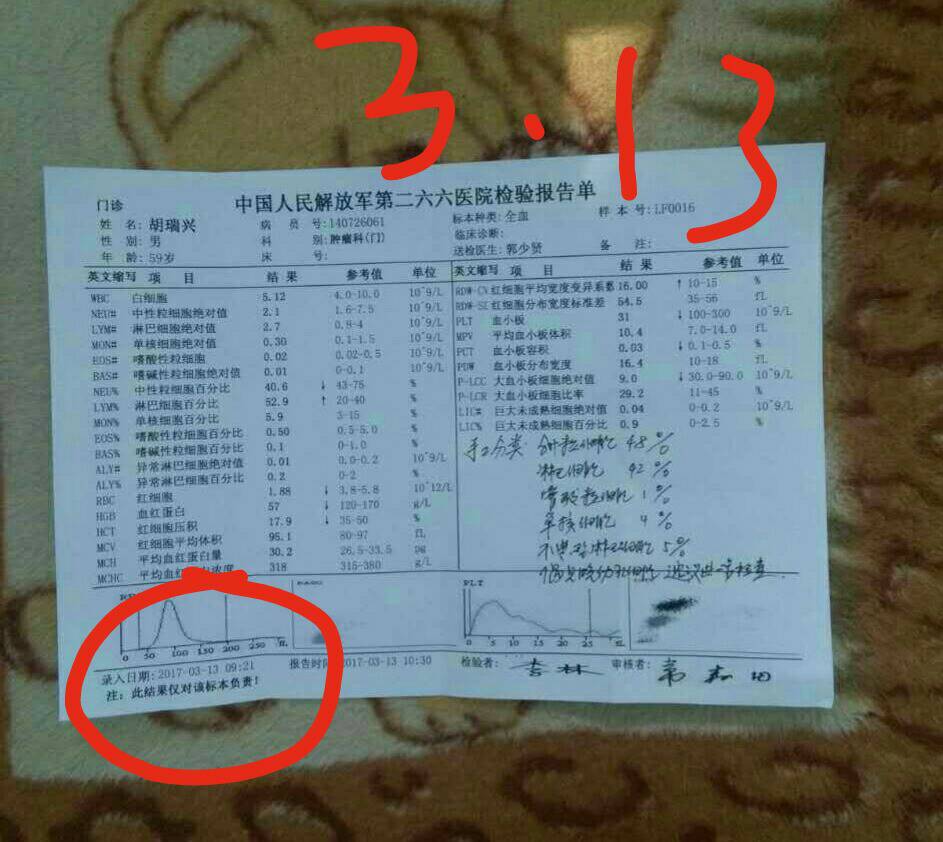 3.13
中国人民解放军第二六六医院检验报告单
门诊
姓 名: 胡瑞兴 病 员 号:140726061 标本种类: 全血 样 本 号: LF0016
性 别: 男 科 别: 肿瘤科(门) 临床诊断:
年 龄: 59岁 床 号: 送检医生: 郭少贤 备 注:
英文缩写 项 目 结 果 参考值 单位
WBC 白细胞 5.12 4.0-10.0 10^9/L
NEU# 中性粒细胞绝对值 2.1 1.6-7.5 10^9/L
LYM# 淋巴细胞绝对值 2.7 0.8-4 10^9/L
MON# 单核细胞绝对值 0.30 0.1-1.5 10^9/L
EOS# 嗜酸性粒细胞 0.02 0.02-0.5 10^9/L
BAS# 嗜碱性粒细胞绝对值 0.01 0-0.1 10^9/L
NEU% 中性粒细胞百分比 40.6 ↓ 43-75 %
LYM% 淋巴细胞百分比 52.9 ↑ 20-40 %
MON% 单核细胞百分比 5.9 3-15 %
EOS% 嗜酸性粒细胞百分比 0.50 0.5-5.0 %
BAS% 嗜碱性粒细胞百分比 0.1 0-1.0 %
ALY# 异常淋巴细胞绝对值 0.01 0.0-0.2 10^9/L
ALY% 异常淋巴细胞百分比 0.2 0-2 %
RBC 红细胞 1.88 ↓ 3.8-5.8 10^12/L
HGB 血红蛋白 57 ↓ 120-170 g/L
HCT 红细胞压积 17.9 ↓ 35-50 %
MCV 红细胞平均体积 95.1 80-97 fL
MCH 平均血红蛋白量 30.2 26.5-33.5 pg
MCHC 平均血红 浓度 318 315-380 g/L
英文缩写 项 目 结 果 参考值 单位
RDW-CV 红细胞平均宽度变异系数 16.00 ↑ 10-15 %
RDW-SD 红细胞分布宽度标准差 54.5 35-56 fL
PLT 血小板 31 ↓ 100-300 10^9/L
MPV 平均血小板体积 10.4 7.0-14.0 fL
PCT 血小板容积 0.03 ↓ 0.1-0.5 %
PDW 血小板分布宽度 16.4 10-18 fL
P-LCC 大血小板细胞绝对值 9.0 ↓ 30.0-90.0 10^9/L
P-LCR 大血小板细胞比率 29.2 11-45 %
LIC# 巨大未成熟细胞绝对值 0.04 0-0.2 10^9/L
LIC% 巨大未成熟细胞百分比 0.9 0-2.5 %
手工分类: 分叶粒细胞 48%
淋巴细胞 42%
嗜酸粒细胞 1%
单核细胞 4%
不典型淋巴细胞 5%
PLT
0 50 100 150 200 250 fL
0 5 10 15 20 25 fL
录入日期: 2017-03-13 09:21 报告时间 2017-03-13 10:30 检验者: 审核者:
注: 此结果仅对该标本负责!